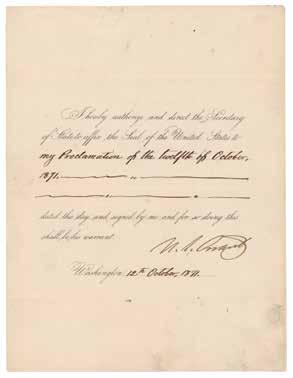 I hereby authorize and direct the Secretary
of State to affix the Seal of the United States to
my Proclamation of the twelfth of October,
1871.
dated this day, and signed by me and for so doing this
shall be his warrant.
U. S. Grant
Washington 12th October, 1871.